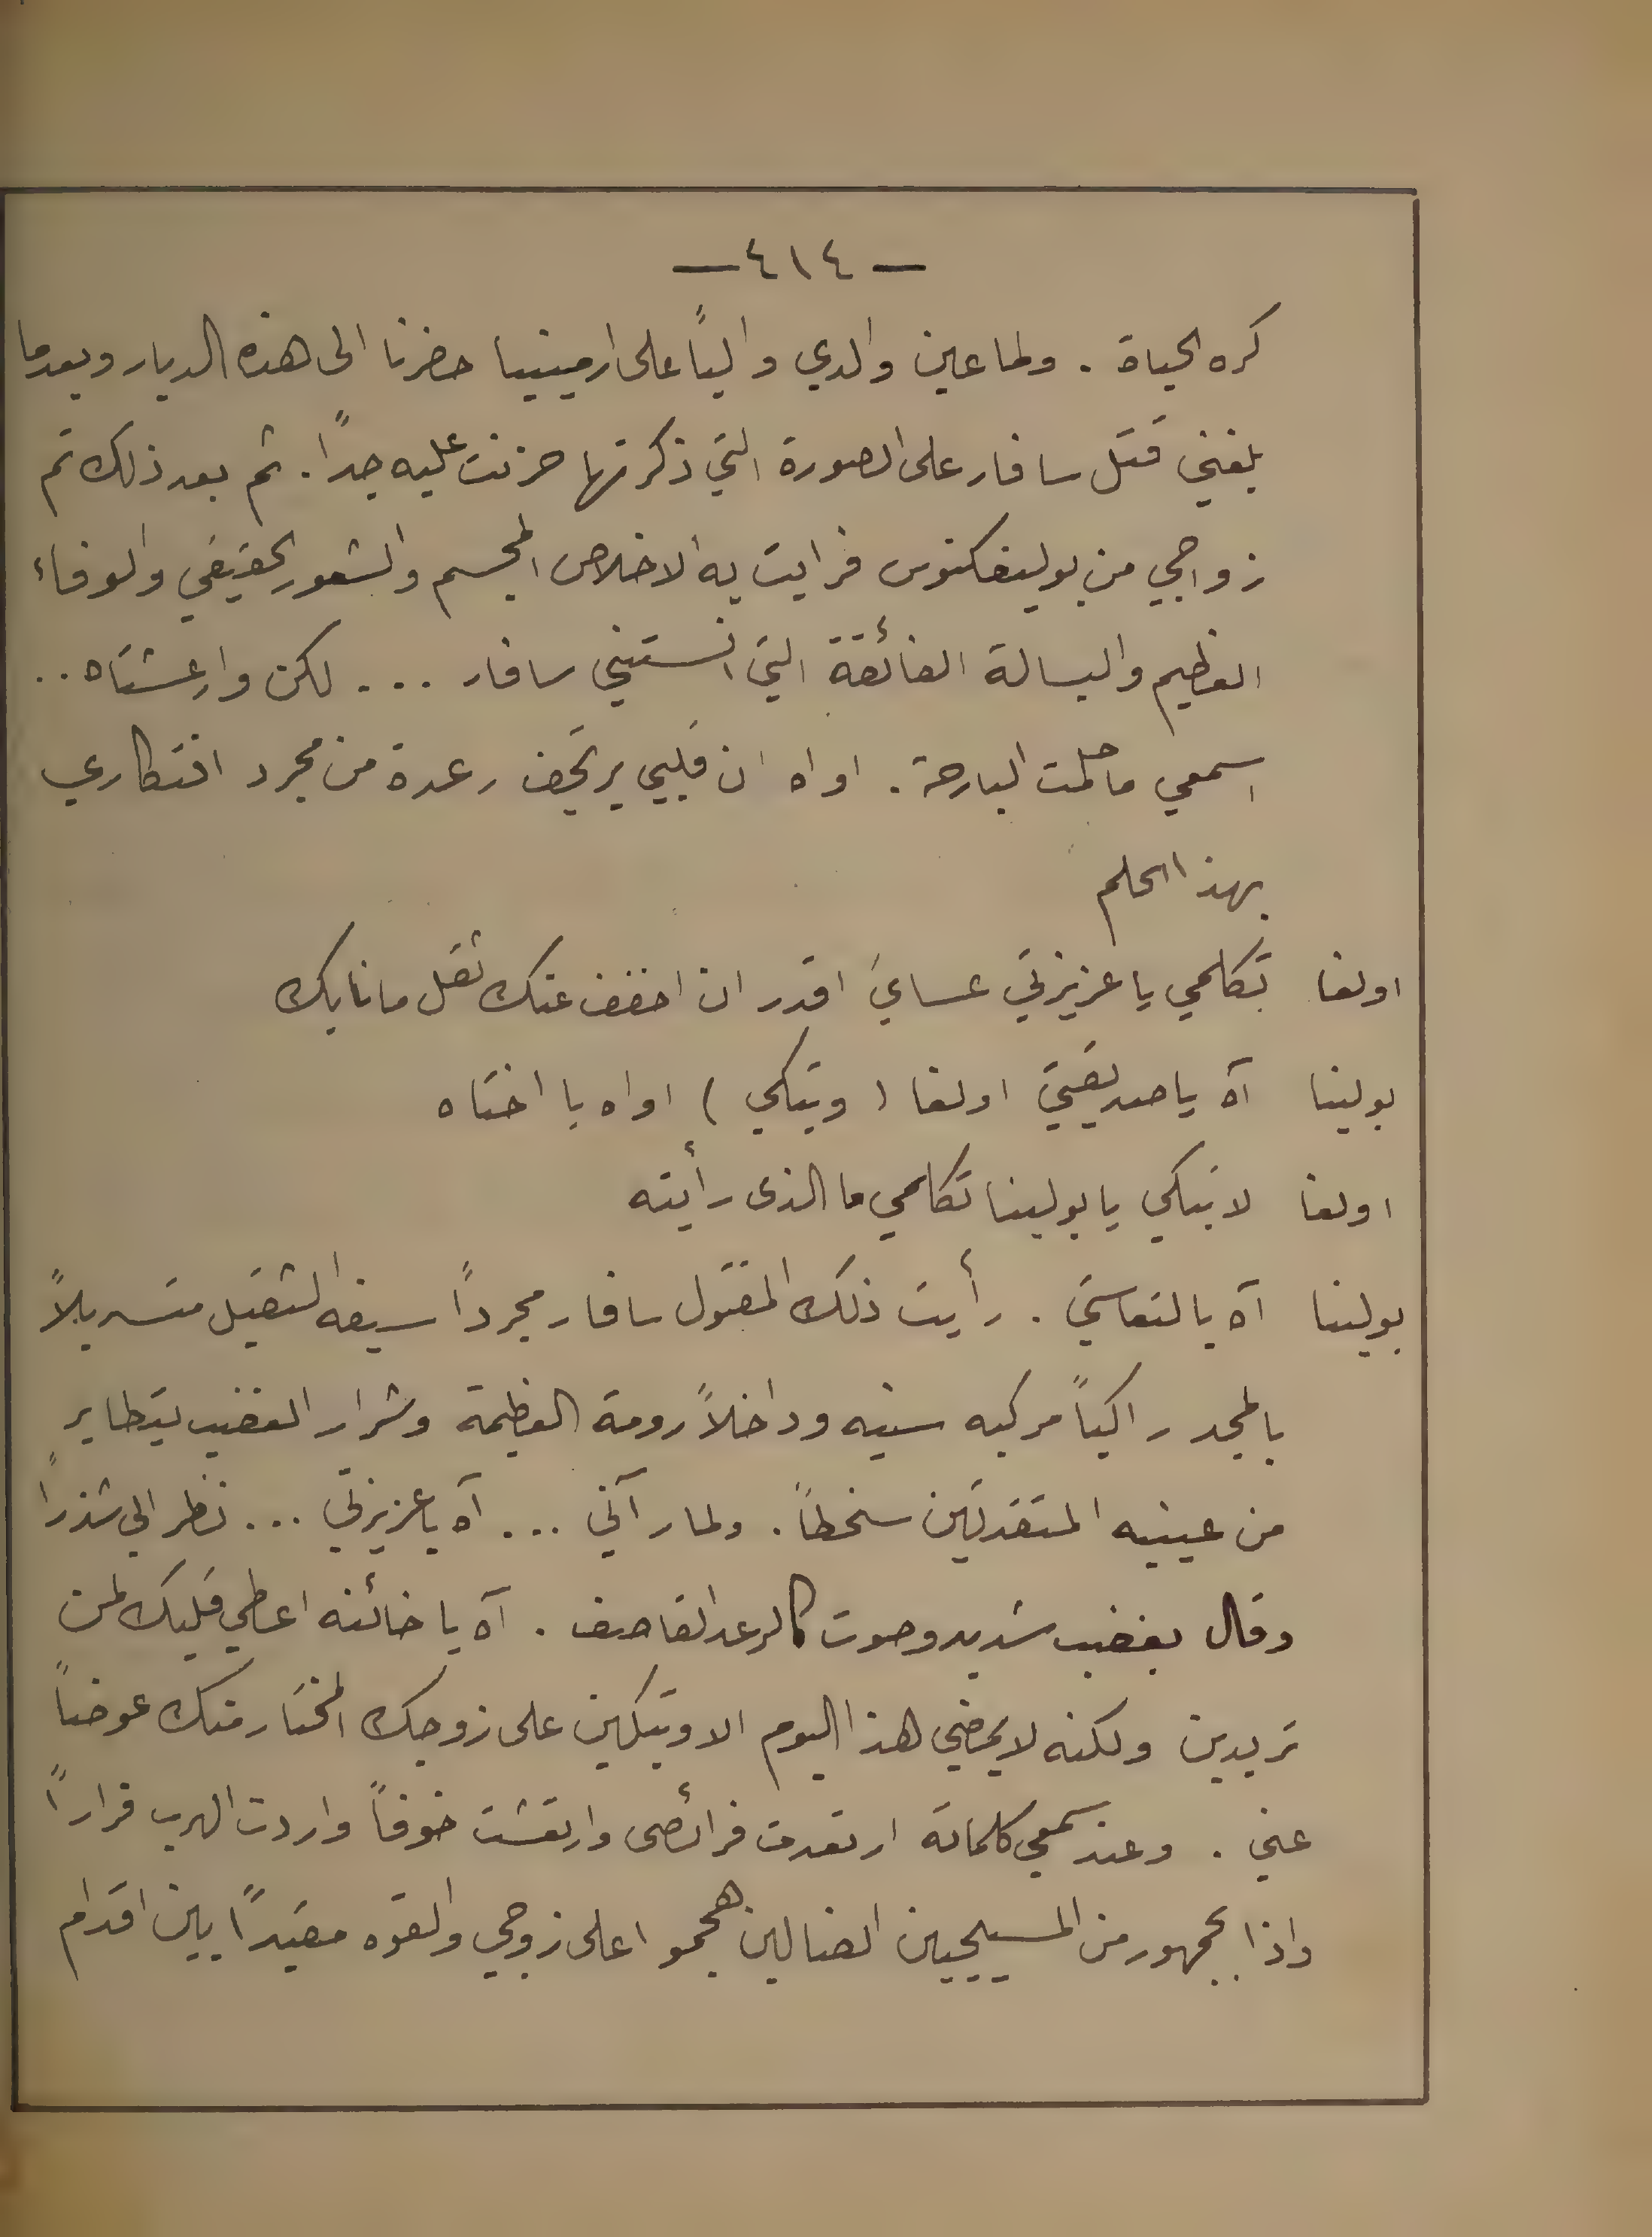 — ٤١٤ —
كره الحياة . ولما عين والدي والياً على ارمينيا حضرنا الى هذه الديار وبعدما
بلغني قتل سافار على الصورة التي ذكرتها حزنت عليه جداً . ثم بعد ذلك تم
زواجي من بوليفكتوس فرايت به الاخلاص المجسم والشعور الحقيقي والوفاء
العظيم والبسالة الفائقة التي انستني سافار ... لكن وارعشتاه ..
اسمعي ما حلمت البارحة . اواه ان قلبي يرتجف رعدة من مجرد افتكاري
بهذا الحلم
اولغا تكلمي يا عزيزتي عساي اقدر ان اخفف عنك ثقل ما نابك
بولينا آه يا صديقتي اولغا ( وتبكي ) اواه يا اختاه
اولغا لا تبكي يا بولينا تكلمي ما الذى رأيته
بولينا آه يا لتعاستي . رأيت ذلك المقتول سافار مجرداً سيفه الثقيل متسربلاً
بالمجد راكباً مركبه سنيه وداخلاً رومة العظيمة وشرار الغضب يتطاير
من عينيه المتقدتين سخطاً . ولما رآني ... آه يا عزيزتي ... نظر الي شذراً
وقال بغضب شديد وصوت كالرعد القاصف . آه يا خائنه اعطي قلبك لمن
تريدين ولكنه لا يمضي هذا اليوم الا وتبكين على زوجك المختار منك عوضاً
عني . وعند سمعي كلماته ارتعدت فرائصى وارتعشت خوفاً واردت الهرب فراراً
واذا بجمهور من المسيحيين الضالين هجموا على زوجي والقوه مقيداً بين اقدام